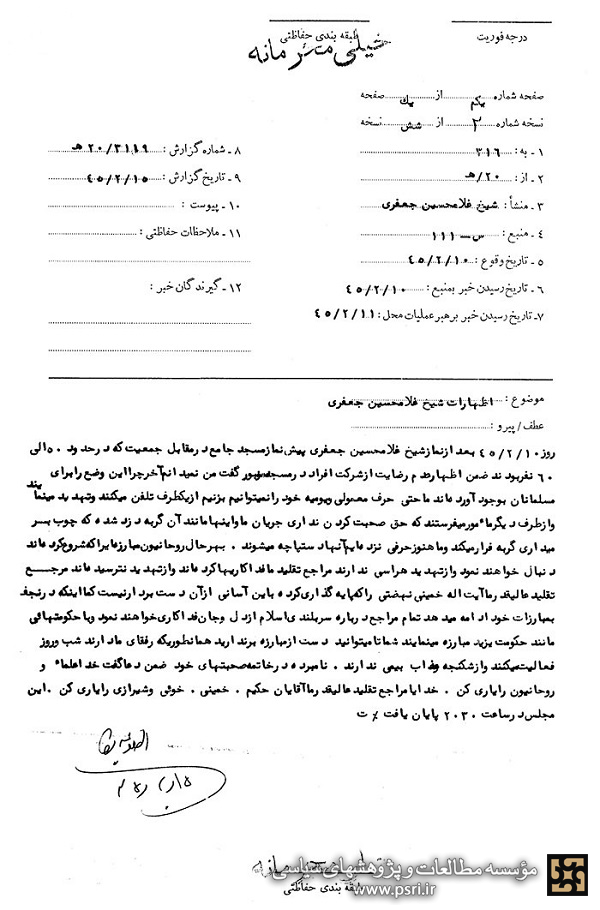 درجه فوریت
طبقه بندی حفاظتی
خیلی محرمانه
صفحه شماره یکم از یک صفحه
نسخه شماره ۲ از شش نسخه
۱ـ به : ۳۱۶
۲ـ از : ۲۰/هـ
۳ـ منشأ : شیخ غلامحسین جعفری
۴ـ منبع : س ـ ۱۱۱
۵ـ تاریخ وقوع : ۴۵/۲/۱۰
۶ـ تاریخ رسیدن خبر بمنبع : ۴۵/۲/۱۰
۷ـ تاریخ رسیدن خبر برهبر عملیات محل : ۴۵/۲/۱۱
۸ـ شماره گزارش : ۲۰/۳۱۱۹هـ
۹ـ تاریخ گزارش : ۴۵/۲/۱۵
۱۰ـ پیوست :
۱۱ـ ملاحظات حفاظتی :
۱۲ـ گیرندگان خبر :
موضوع : اظهارات شیخ غلامحسین جعفری
عطف/پیرو :
روز ۴۵/۲/۱۰ بعد از نماز شیخ غلامحسین جعفری پیش نماز مسجد جامع در مقابل جمعیت که در حدود ۵۰ الی
۶۰ نفر بودند ضمن اظهار عدم رضایت از شرکت افراد در مسجد مزبور گفت من نمیدانم آخر چرا این وضع را برای
مسلمانان بوجود آورده‌اند ما حتی حرف معمولی و یومیه خود را نمیتوانیم بزنیم از یکطرف تلفن میکنند و تهدید مینمایند
و از طرف دیگر مأمور میفرستند که حق صحبت کردن نداری جریان ما و اینها مانند آن گربه دزد شده که چوب بر
میداری گربه فرار میکند و ما هنوز حرفی نزده‌ایم آنها دستپاچه میشوند . بهر حال روحانیون مبارزه ایرا که شروع کرده‌اند
دنبال خواهند نمود و از تهدید هراسی ندارند مراجع تقلید ما فداکاریها کرده‌اند و از تهدید نترسیده‌اند مرجع
تقلید عالیقدر ما آیت اله خمینی نهضتی را که پایه گذاری کرده باین آسانی از آن دست بردار نیست کما اینکه در نجف
بمبارزات خود ادامه میدهد تمام مراجع درباره سربلندی اسلام از دل و جان فداکاری خواهند نمود و با حکومتهائی
مانند حکومت یزید مبارزه مینمایند شما تا میتوانید دست از مبارزه برندارید همانطوریکه رفقای ما دارند شب و روز
فعالیت میکنند و از شکنجه و عذاب بیمی ندارند . نامبرده در خاتمه صحبتهای خود ضمن دعا گفت خدا علماء و
روحانیون را یاری کن . خدایا مراجع تقلید عالیقدر ما آقایان حکیم . خمینی . خوئی و شیرازی را یاری کن . این
مجلس در ساعت ۲۰۳۰ پایان یافت ٪ ت
طبقه بندی حفاظتی
مؤسسه مطالعات و پژوهشهای سیاسی
www.psri.ir